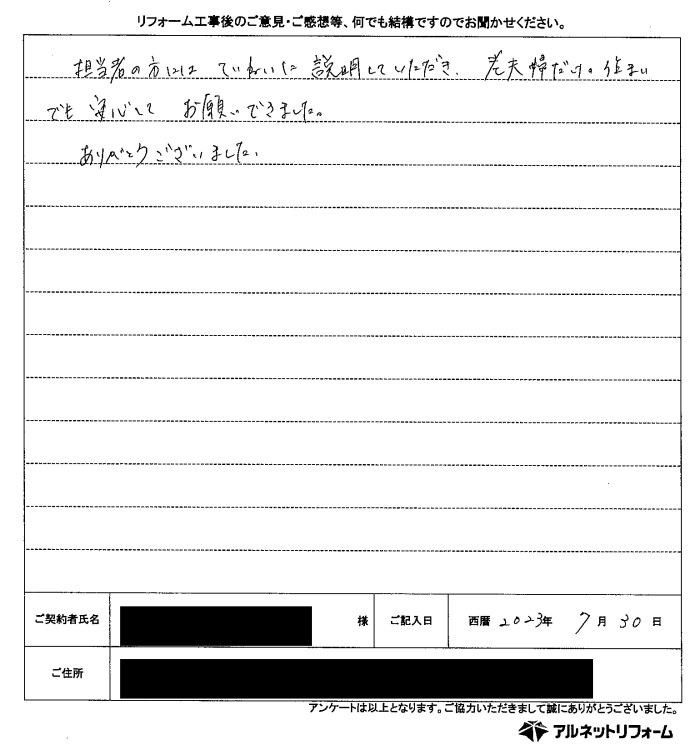 リフォーム工事後のご意見・ご感想等、何でも結構ですのでお聞かせください。
担当者の方には ていねいに 説明していただき、 老夫婦だけの住まい
でも 安心して お願いできました。
ありがとうございました。
ご契約者氏名 様 ご記入日 西暦 2023年 7月 30日
ご住所
アンケートは以上となります。ご協力いただきまして誠にありがとうございました。
アルネットリフォーム